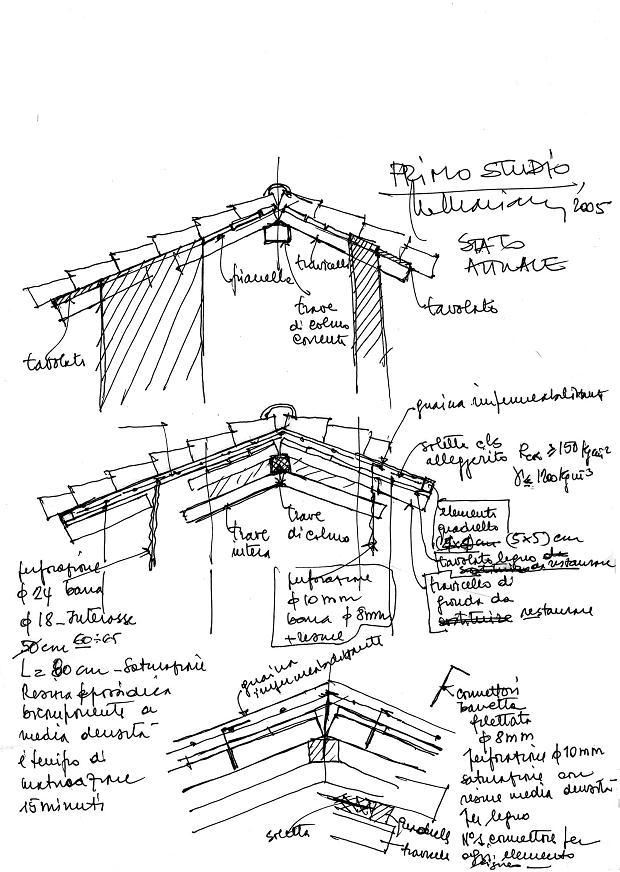 PRIMO STUDIO
2005
STATO
ATTUALE
pianelle
travicelli
trave
di colmo
corrente
tavolato
tavolato
guaina impermeabilizzante
soletta cls
alleggerito Rck ≥ 150 Kg cm²
γ ≤ 1200 Kg m³
elementi
quadrello
(5x5) cm
tavolato legno da
restaurare
travicello di
gronda da
restaurare
trave
intera
trave
di colmo
perforazione
φ 24 barra
φ 18 - Interasse
50 cm 60÷65
L = 80 cm - Saturazione
Resina epossidica
bicomponente a
media densità
e tempo di
maturazione
15 minuti
perforazione
φ 10 mm
barra φ 8 mm
+ resine
guaina
impermeabilizzante
connettori
barretta
filettata
φ 8 mm
perforazione φ 10 mm
saturazione con
resine media densità
per legno
N° 1 connettore per
ogni elemento
ligneo
soletta
quadrelli
travicelli